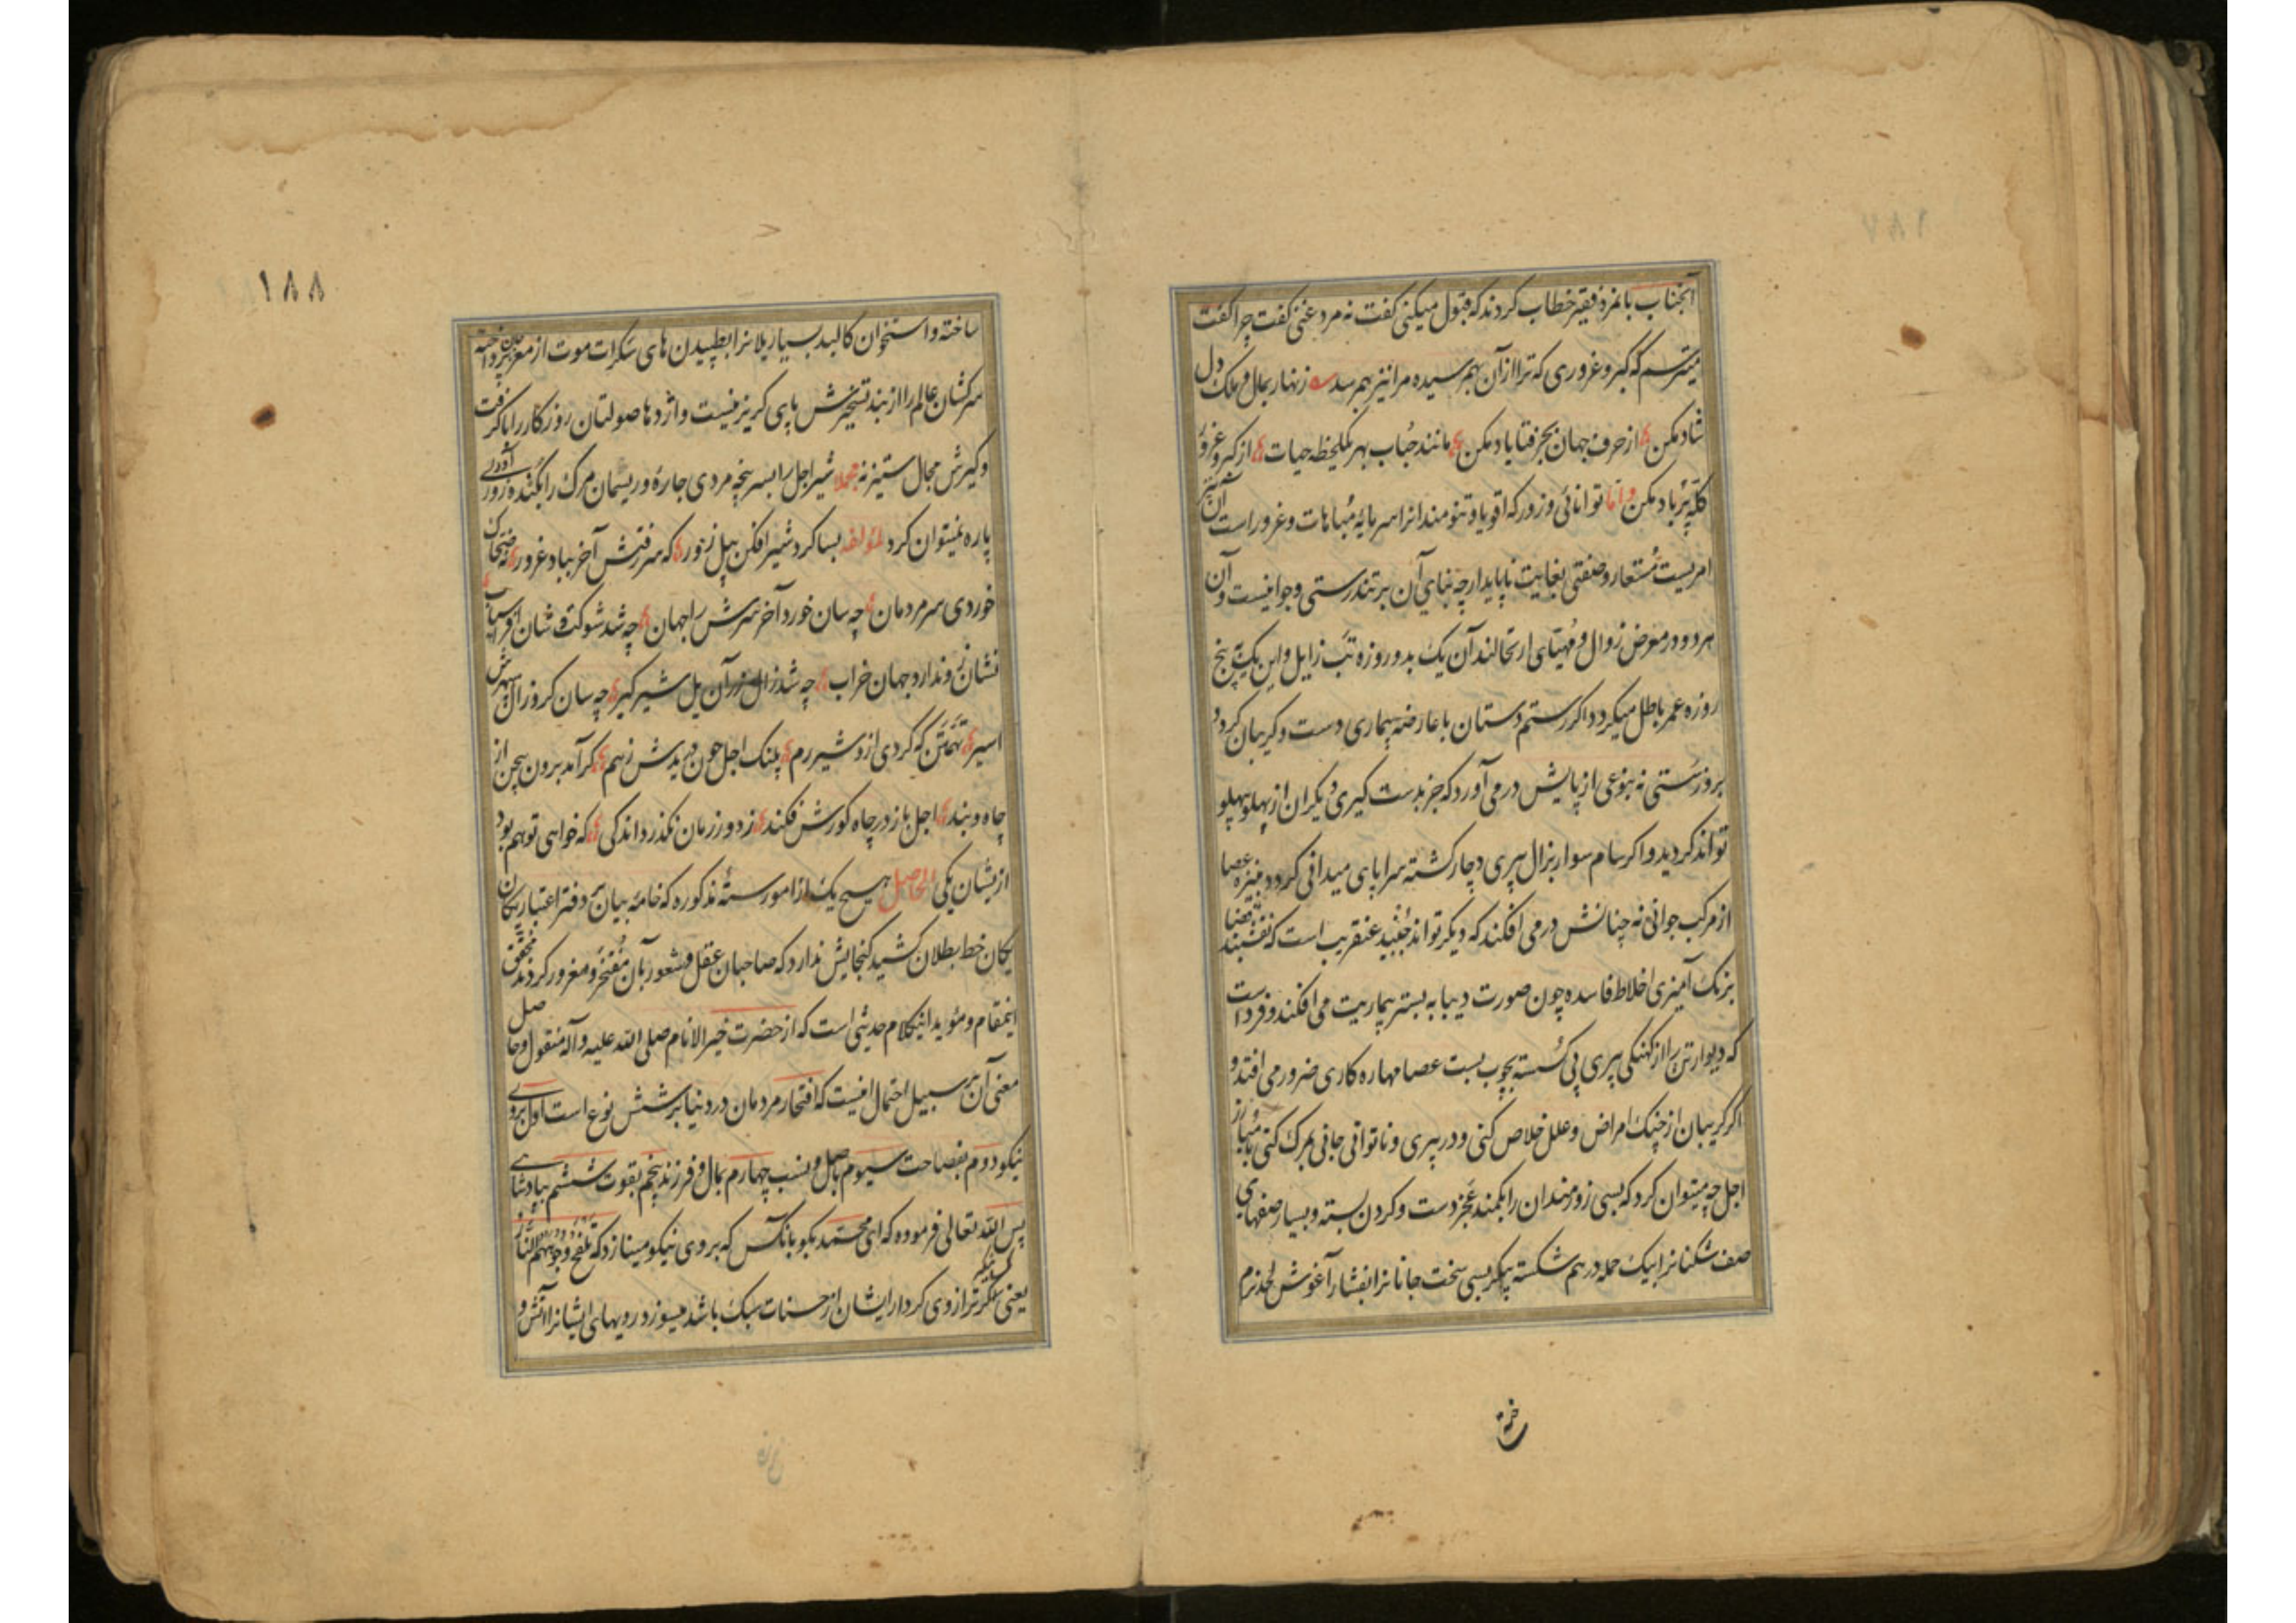 آنجناب بانمرد فقیر خطاب کردند که قبول میکنی گفت نه مرد غنی گفت چرا گفت
میترسم که کبر و غروری که ترا از آن بهم رسیده مرا نیز بهم رسد زنهار بمال و ملک دل
شاد مکن از حرف جهان بجز فنا یاد مکن مانند حباب بهر یکلحظه حیات از کبر و غرور
کله پر باد مکن و اما توانائی و زور که اقویا و تنومندانرا سرمایهٔ مباهات و غرور است آن نیز
امریست مستعار و صفتی بغایت ناپایدار چه بنای آن بر تندرستی و جوانیست و آن
هر دو در معرض زوال و مهیای ارتحالند آن یک بدو روزه تب زایل و این یک به پنج
روزه عمر باطل میگردد اگر رستم دستان با عارضه بیماری دست و گریبان گردد
بروز سستی نه بنوعی از پایش در می آورد که جز بدست گیری دیگران از پهلو بپهلو
تواند گردید و اگر سام سوار بزال پیری دچار گشته سراپای میدانی گردد بنیزه عصا
از مرکب جوانی نه چنانش در می افکند که دیگر تواند جنبید عنقریب است که نقشبند قضا
برنگ آمیزی اخلاط فاسده چون صورت دیبا به بستر بیماریت می افکند و فرداست
که دیوار تن را از کهنگی پیری پی گسسته بچوب بست عصا مهاره کاری ضرور می افتد و
اگر گریبان از چنگ امراض و علل خلاص کنی و در پیری و ناتوانی جانی بمرک کنی با مبارز
اجل چه میتوان کرد که بسی زورمندان را بکمند عجز دست و گردن بسته و بسیار صفهای
صف شکنانرا بیک حمله در هم شکسته پیکر بسی سخت جانانرا بفشار آغوش لحد نرم
ساخته
١٨٨
ساخته و استخوان کالبد بسیار یلانرا بطپیدن های سکرات موت از مغز جان پرداخته
سرکشان عالم را از بند تسخیرش پای گریز نیست و اژدها صولتان روزگار را با گرفت
و گیرش مجال ستیز نه مجملا شیر اجل را بسر پنجه مردی چاره و ریسمان مرگ را بکنده زورآوری
پاره نمیتوان کرد لمؤلفه بسا کرد شیر افکن پیل زور که سر رفتش آخر بباد غرور نه ضحاک
خوردی سر مردمان چه سان خورد آخر سرش را جهان چه شد شوکت و شان افراسیاب
نشان زو ندارد جهان خراب چه شد زال زر آن یل شیر گیر چه سان کرد زال سپهرش
اسیر تهمتن که کردی ازو شیر رم پلنگ اجل چون دریدش زهم گر آمد برون بیجن از
چاه و بند اجل باز در چاه گورش فکند زدور زمان نگذرد اندکی که خواهی تو هم بود
از یشان یکی الحاصل هیچ یک از امور ستهٔ مذکوره که خامه بیان بر دفتر اعتبار یکان
یکان خط بطلان کشید گنجایش ندارد که صاحبان عقل و شعور بآن مفتخر و مغرور گردند محقق
اینمقام و مؤید اینکلام حدیثی است که از حضرت خیر الانام صلی الله علیه و آله منقول و حاصل
معنی آن بر سبیل احتمال اینست که افتخار مردمان در دنیا بر شش نوع است اول بروی
نیکو دوم بفصاحت سیوم باصل و نسب چهارم بمال و فرزند پنجم بقوت ششم بپادشاهی
پس الله تعالی فرموده که ای محمد بگو بانکس که بروی نیکو مینازد که تلفح وجوههم النار
یعنی کسانیکه ترازوی کردار ایشان از حسنات سبک باشد میسوزد رویهای ایشانرا آتش و